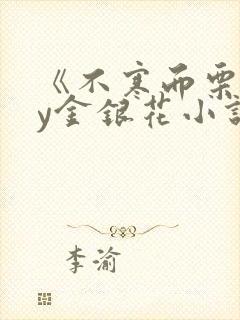 《不寒而栗
y金银花小说
李渝